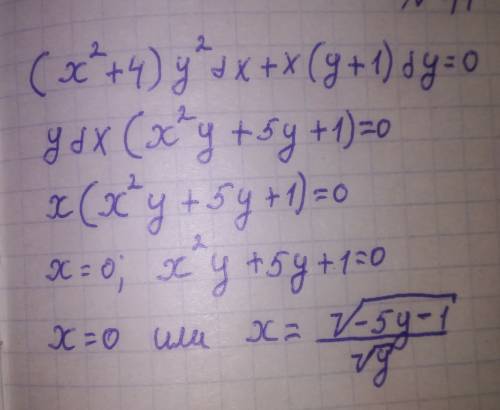 (x²+4) y² dx + x (y+1) dy = 0
y dx (x²y + 5y + 1) = 0
x (x²y + 5y + 1) = 0
x = 0; x²y + 5y + 1 = 0
x = 0 или x = √(-5y-1)/√y